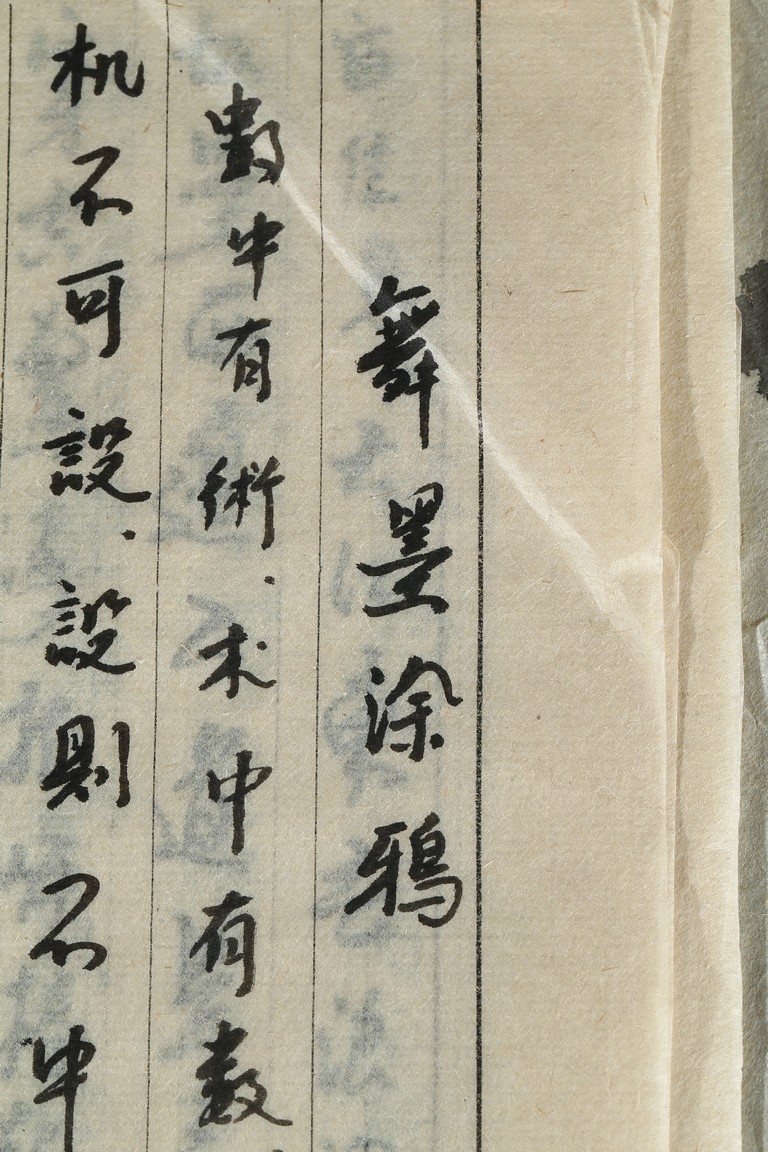 舞墨涂鸦
數中有術.术中有数.
机不可設.設則不中